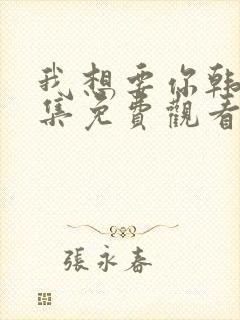 我想要你韩
集免費觀看
張永春